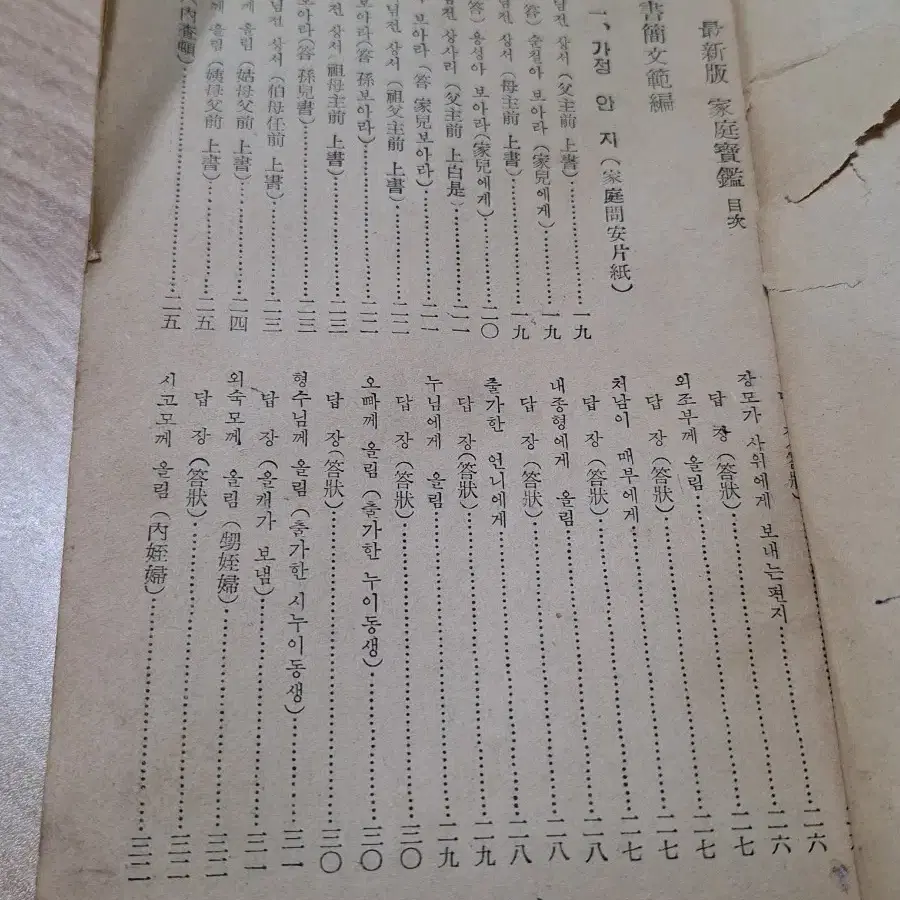 最新版 家庭寶鑑 目次
書簡文範編
一、가정 안 지 (家庭問安片紙)
님전 상서 (父主前 上書) 一九
(答) 순철아 보아라 (家兒에게) 一九
님전 상서 (母主前 上書) 一九
(答) 용성아 보아라 (家兒에게) 二〇
님전 상사리 (父主前 上白是) 二一
보아라 (答 家兒보아라) 二一
님전 상서 (祖父主前 上書) 二二
보아라 (答 孫보아라) 二二
님전 상서 (祖母主前 上書) 二三
보아라 (答 孫兒書) 二三
님전 상서 (伯母任前 上書) 二三
께 올림 (姑母父前 上書) 二四
께 올림 (姨母父前 上書) 二五
(內査頓) 二五
장모가 사위에게 보내는편지 二六
답 장 (答狀) 二六
외조부께 올림 二七
답 장 (答狀) 二七
처남이 매부에게 二七
답 장 (答狀) 二七
내종형에게 올림 二八
답 장 (答狀) 二八
출가한 언니에게 二八
답 장 (答狀) 二九
누님에게 올림 二九
답 장 (答狀) 三〇
오빠께 올림 (출가한 누이동생) 三〇
답 장 (答狀) 三〇
형수님께 올림 (출가한 시누이동생) 三一
답 장 (올캐가 보냄) 三一
외숙모께 올림 (甥姪婦) 三二
답 장 (答狀) 三二
시고모께 올림 (內姪婦) 三二